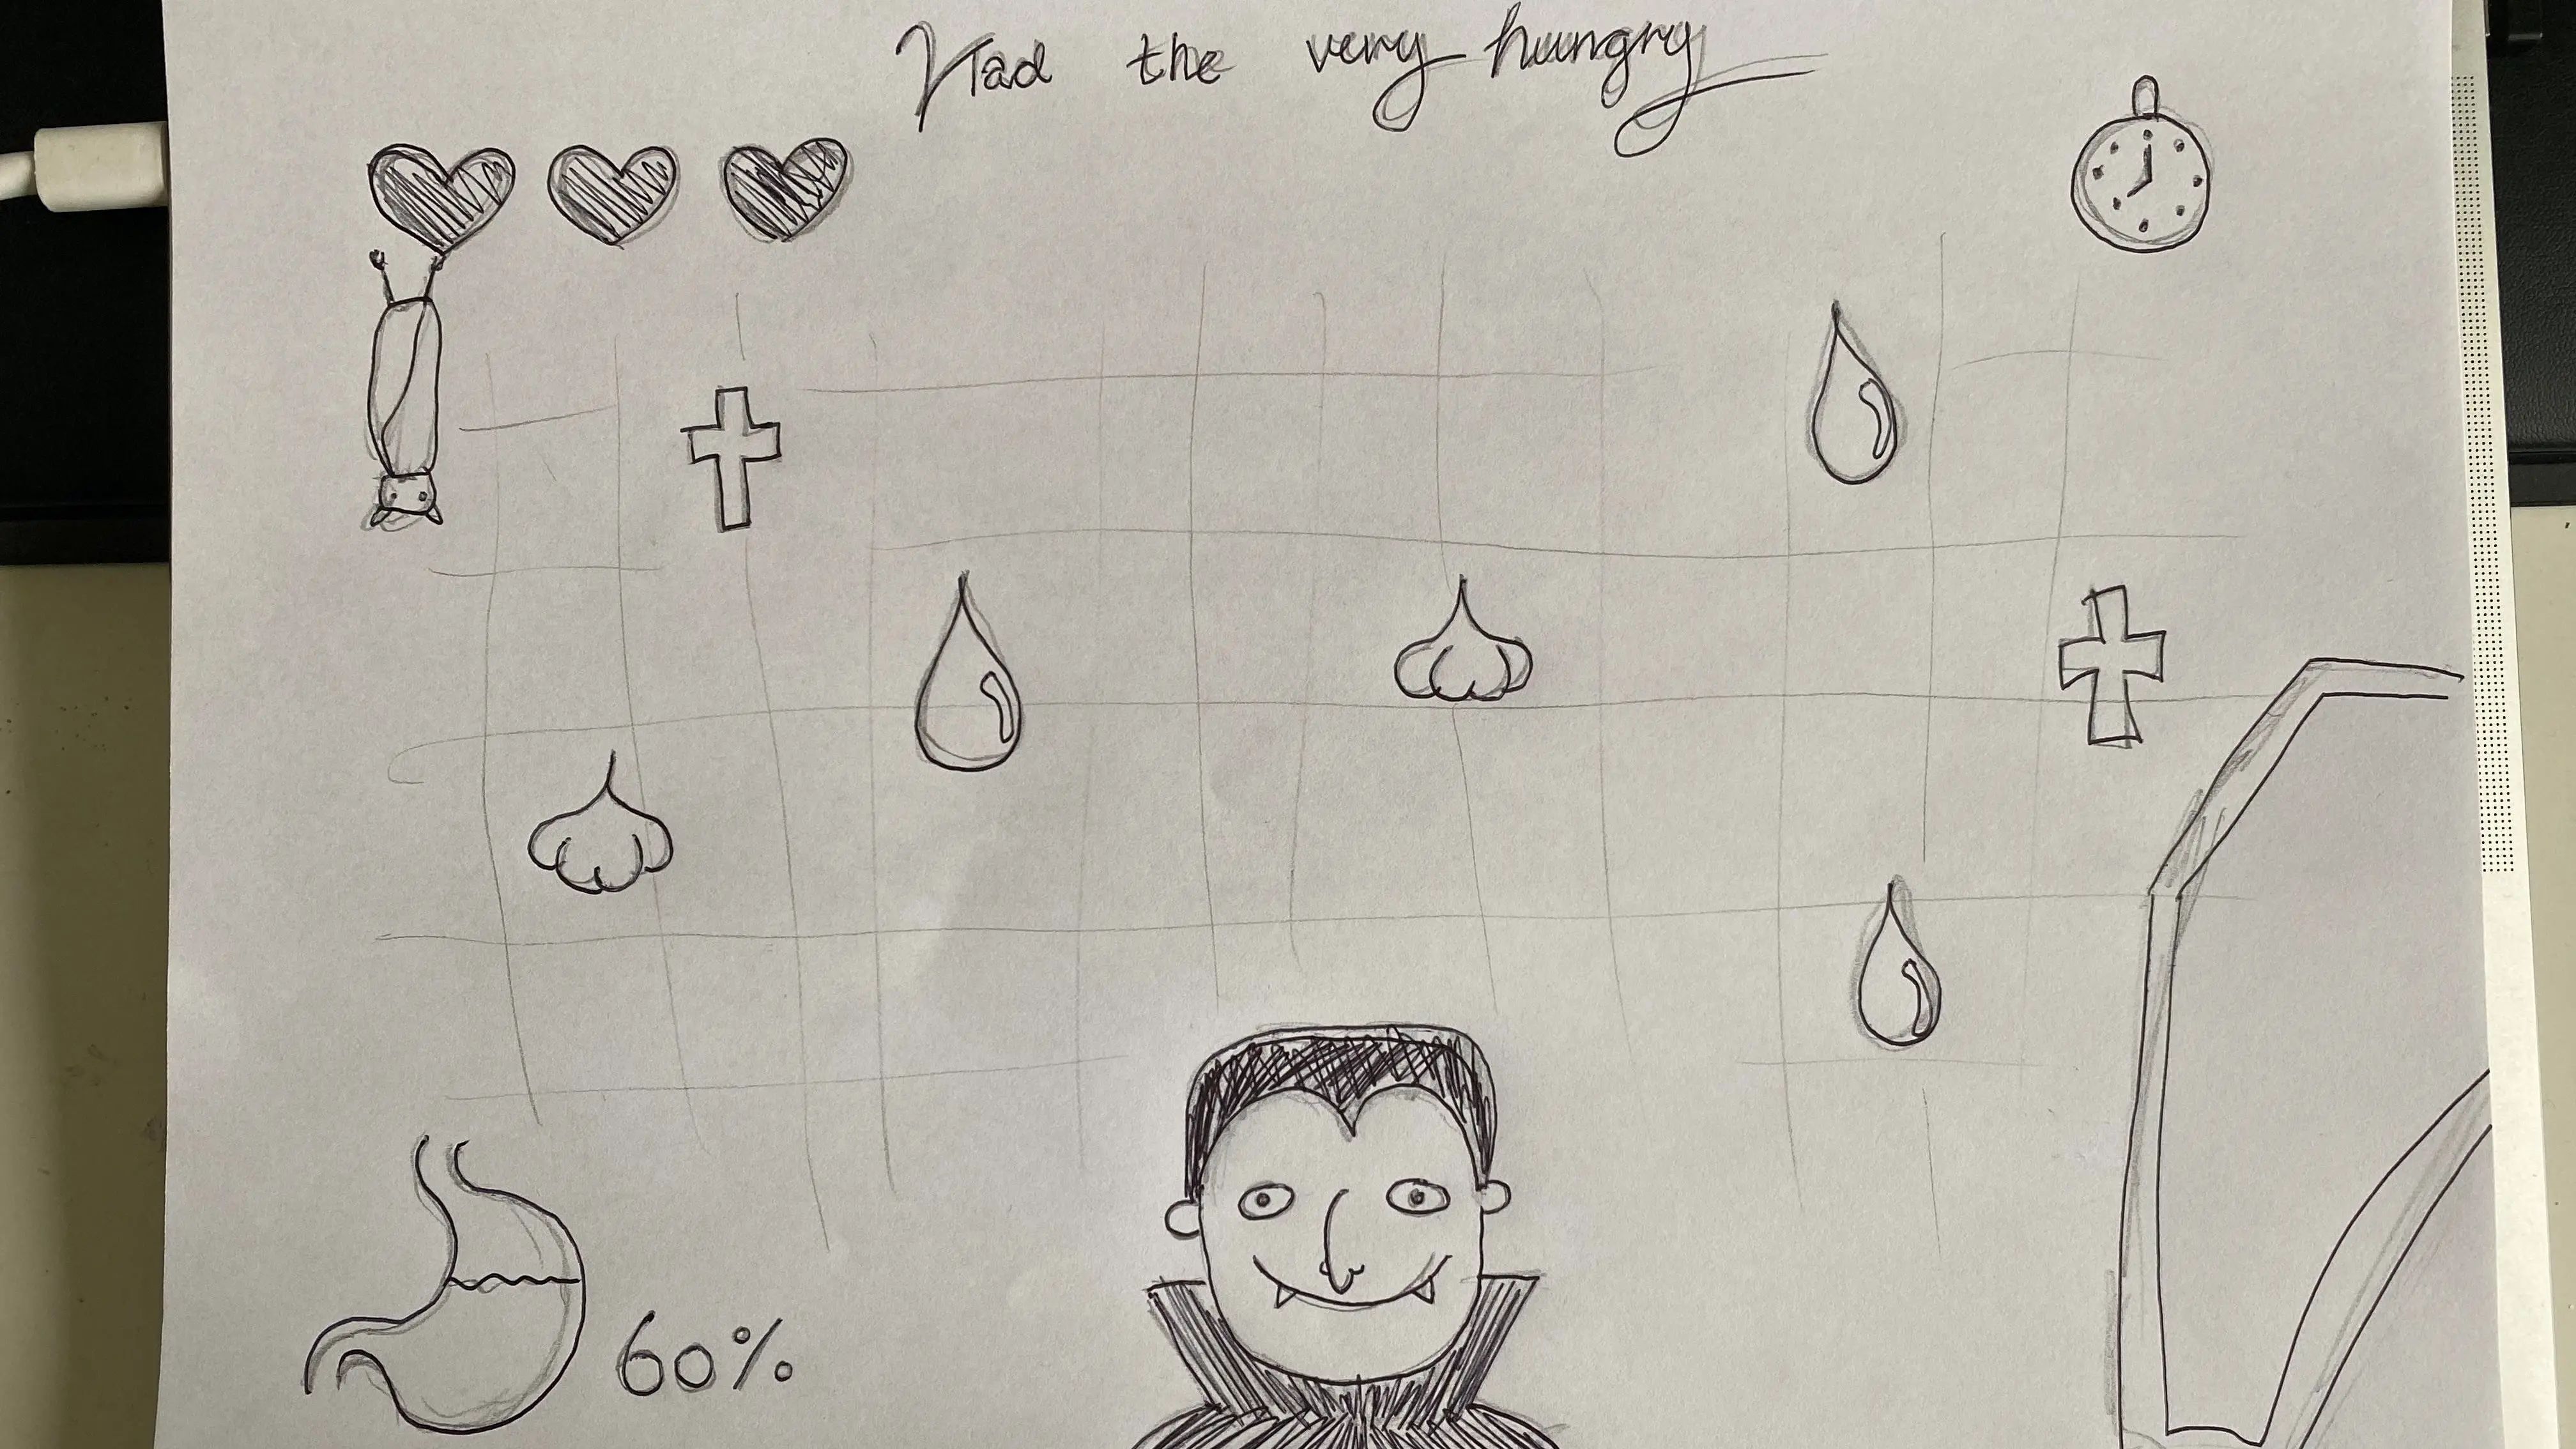 Vlad the very hungry
60%